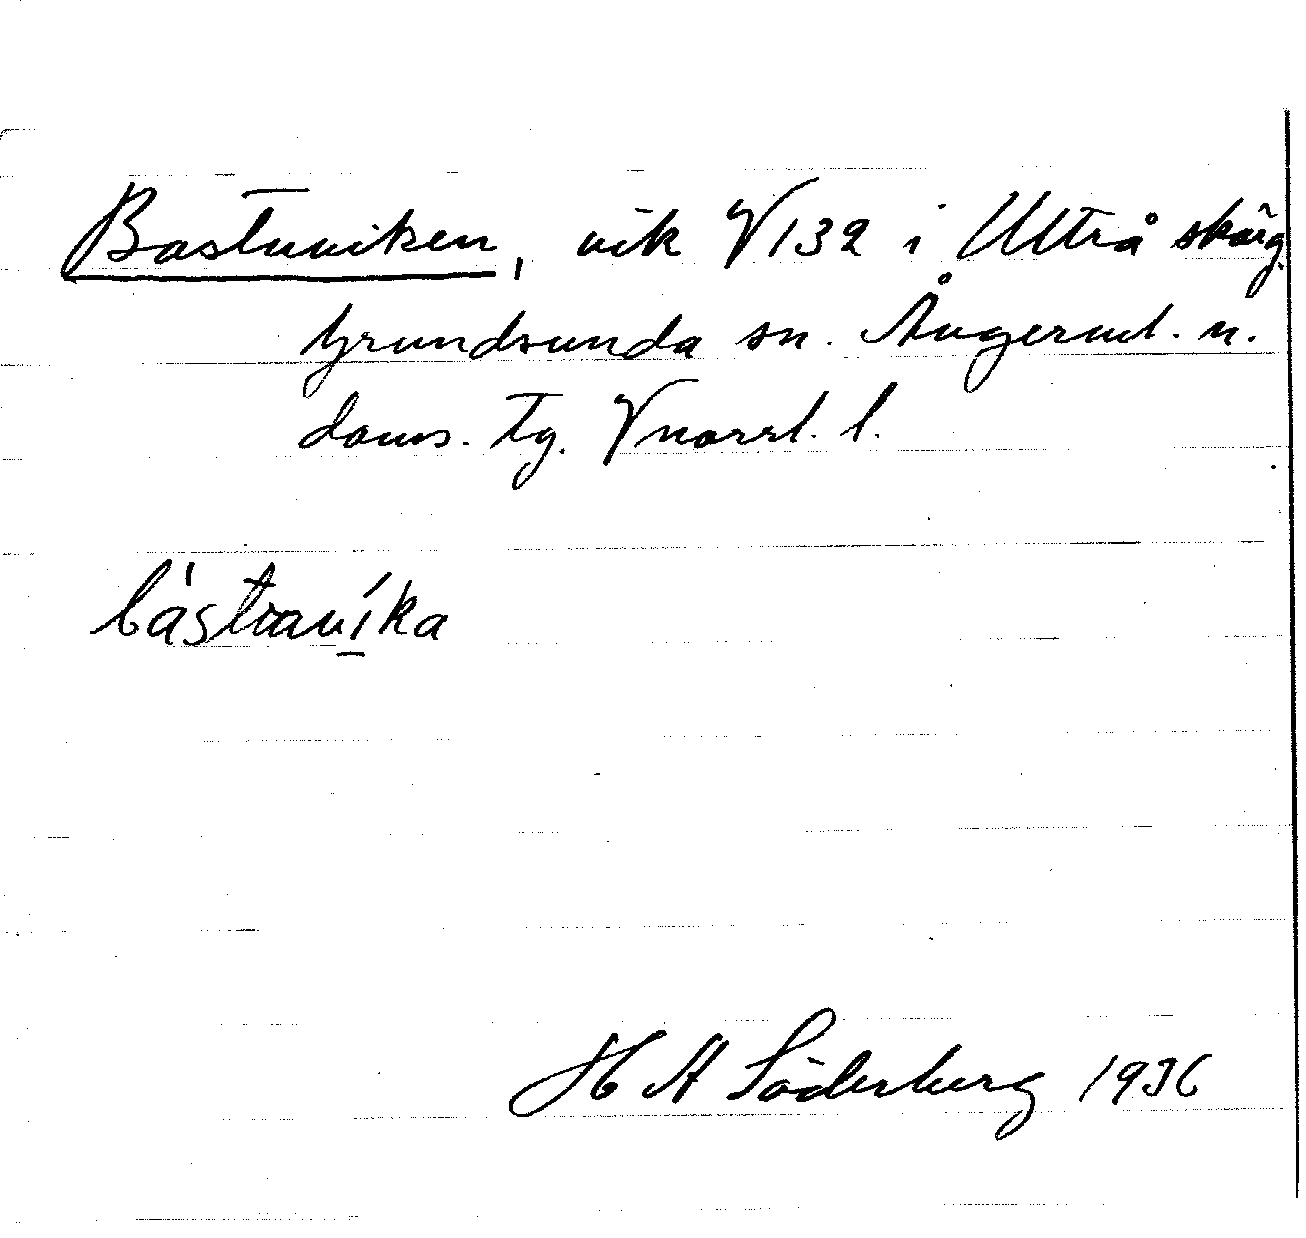 Bastuviken, vik V 132 i Ultrå skärg.
Grundsunda sn. Ångerml. n.
doms. tg. Vnorrl. l.
bástravíka
H A Söderberg 1936